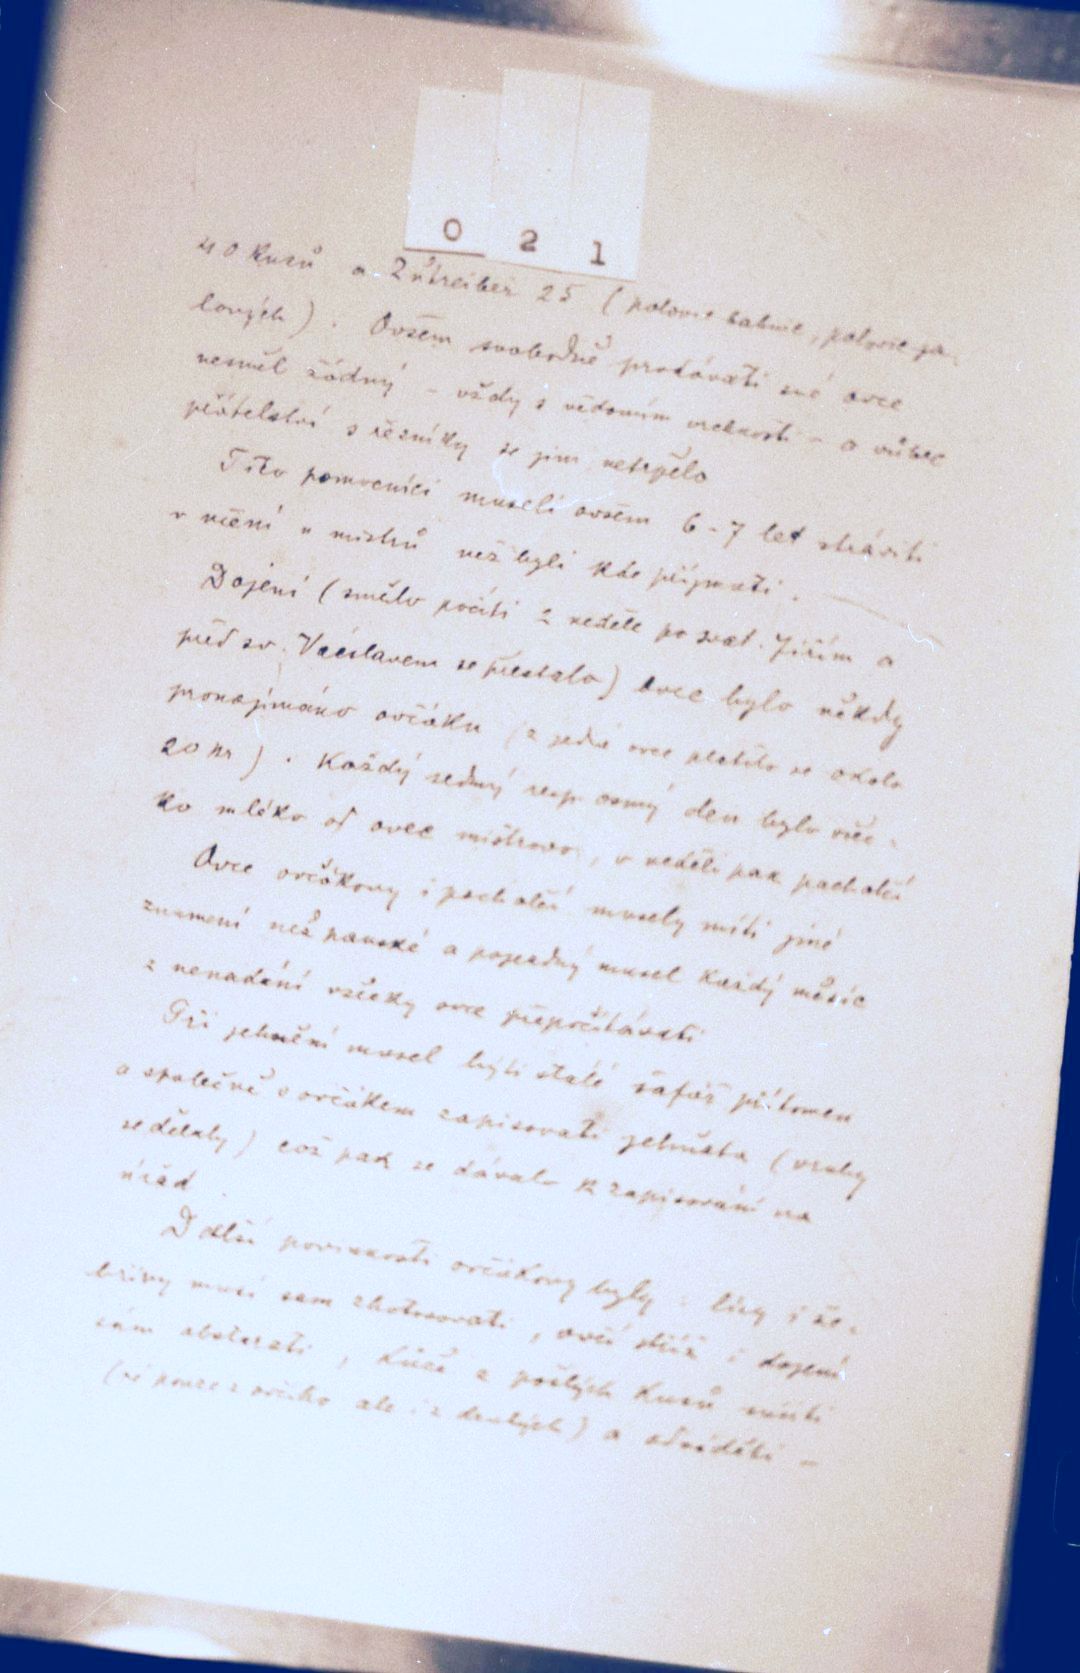 0 2 1
40 kusů a Zutreiber 25 (polovic bahnic, polovic ja-
lových). Ovšem svobodně prodávati své ovce
nesměl žádný - vždy s vědomím vrchnosti - a vůbec
přátelství s řezníky se jim netrpělo
Tito pomocníci museli ovšem 6-7 let stráviti
v učení u mistrů než byli kde přijmati.
Dojení (smělo počíti 2 neděle po svat. Jiřím a
před sv. Václavem se přestalo) ovce bylo někdy
pronajímáno ovčáku (z jedné ovce platilo se okolo
20 kr). Každý sedmý resp. osmý den bylo všec-
ko mléko od ovec mistrovo, v neděli pak pacholčí
Ovce ovčákovy i pacholčí musely míti jiné
znamení než panské a pojezdný musel každý měsíc
z nenadání všecky ovce přepočítávati
Při jehnění musel býti stále šafář přítomen
a společně s ovčákem zapisovati jehňata (vruby
se dělaly) což pak se dávalo k zapisování na
úřad
Další povinnosti ovčákovy byly: lísy i že-
břiny musí sam zhotovovati, ovčí stříž i dojení
sám obstarati, kůže z pošlých kusů
(ne pouze z ovčího ale i z druhých) a odváděti -